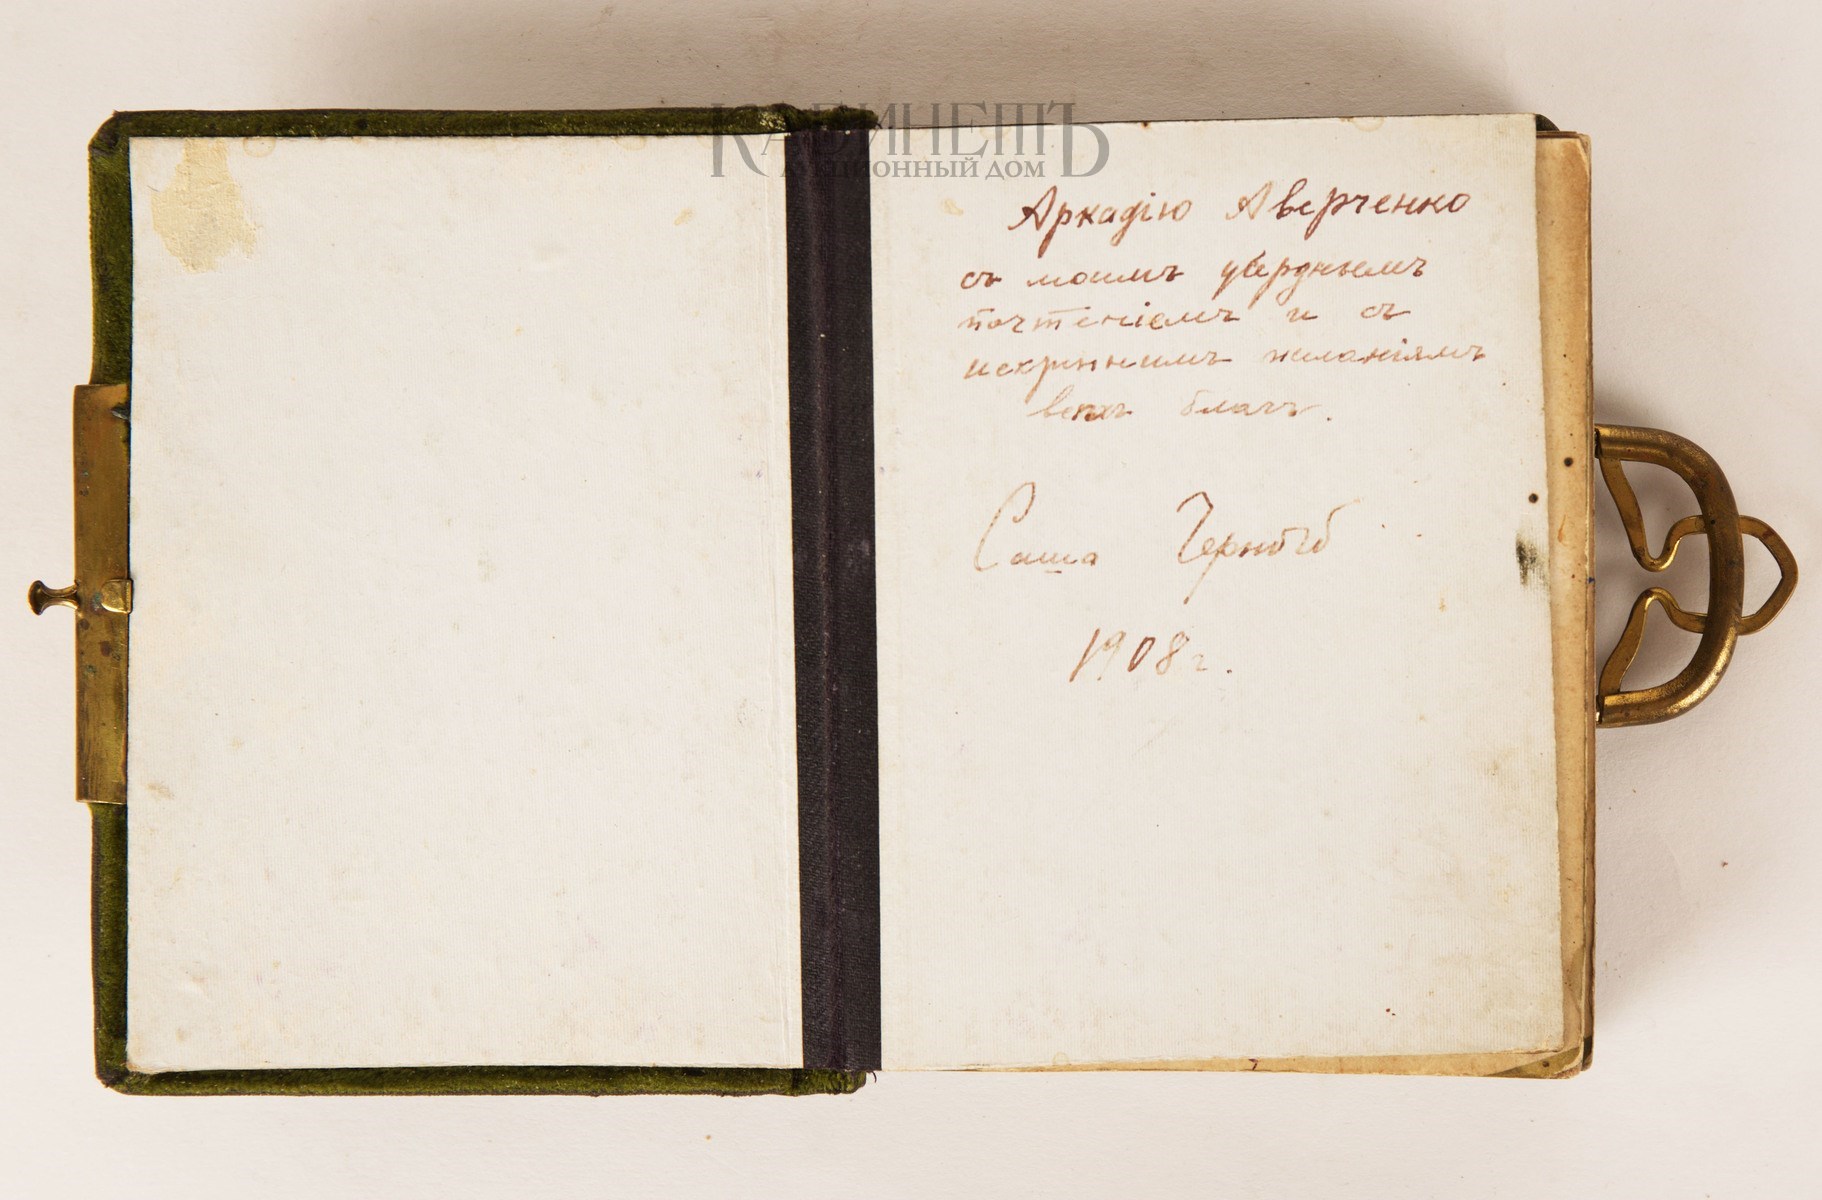 КАБИНЕТЪ
АУКЦИОННЫЙ ДОМ
Аркадію Аверченко
съ моимъ усерднымъ
почтеніемъ и съ
искреннимъ желаніямъ
всѣхъ благъ.
Саша Черный
1908 г.